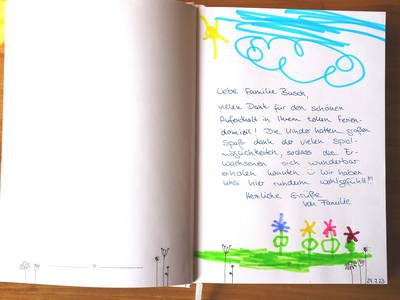 Liebe Familie Busch,
vielen Dank für den schönen
Aufenthalt in Ihrem tollen Ferien-
domizil! Die Kinder hatten großen
Spaß dank der vielen Spiel-
möglichkeiten, sodass die Er-
wachsenen sich wunderbar
erholen konnten u. wir haben
uns hier rundum wohlgefühlt!!!
Herzliche Grüße
von Familie
29.7.23